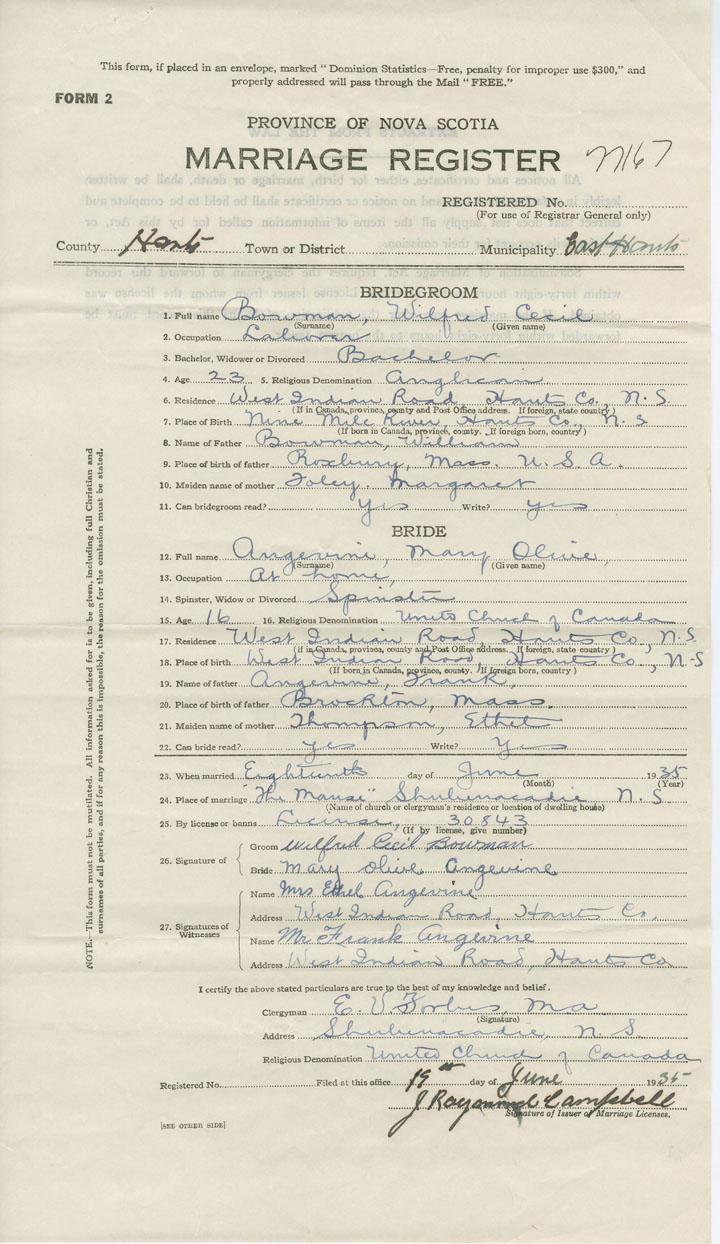 This form, if placed in an envelope, marked "Dominion Statistics—Free, penalty for improper use $300," and
properly addressed will pass through the Mail "FREE."
FORM 2
PROVINCE OF NOVA SCOTIA
MARRIAGE REGISTER
REGISTERED No.
(For use of Registrar General only)
County Hants Town or District Municipality East Hants
BRIDEGROOM
1. Full name Bowman, Wilfred Cecil
(Surname) (Given name)
2. Occupation Laborer
3. Bachelor, Widower or Divorced Bachelor
4. Age 23 5. Religious Denomination Anglican
6. Residence West Indian Road, Hants Co., N.S.
(If in Canada, province, county and Post Office address. If foreign, state country)
7. Place of Birth Nine Mile River, Hants Co., N.S
(If born in Canada, province, county. If foreign born, country)
8. Name of Father Bowman, William
9. Place of birth of father Roxbury, Mass. U.S.A.
10. Maiden name of mother Foley, Margaret
11. Can bridegroom read? Yes Write? yes
BRIDE
12. Full name Angevine, Mary Olive,
(Surname) (Given name)
13. Occupation At home,
14. Spinster, Widow or Divorced Spinster
15. Age 16 16. Religious Denomination United Church of Canada
17. Residence West Indian Road, Hants Co., N.S
(If in Canada, province, county and Post Office address. If foreign, state country)
18. Place of birth West Indian Road, Hants Co., N-S
(If born in Canada, province, county. If foreign born, country)
19. Name of father Angevine, Frank,
20. Place of birth of father Brockton, Mass.
21. Maiden name of mother Thompson, Ethel
22. Can bride read? yes Write? Yes
23. When married day of June 1935
(Month) (Year)
24. Place of marriage "The Manse" Shubenacadie N.S
(Name of church or clergyman's residence or location of dwelling house)
25. By license or banns License, 30843
(If by license, give number)
26. Signature of Groom Wilfred Cecil Bowman
Bride Mary Olive Angevine
27. Signatures of Witnesses Name Mrs Ethel Angevine
Address West Indian Road, Hants Co.
Name Mr Frank Angevine
Address West Indian Road, Hants Co
I certify the above stated particulars are true to the best of my knowledge and belief.
Clergyman E. V. Forbes, M a
(Signature)
Address Shubenacadie, N.S.
Religious Denomination United Church of Canada
Registered No. Filed at this office 19th day of June 1935
J Raymond Campbell
Signature of Issuer of Marriage Licenses.
[SEE OTHER SIDE]
NOTE.—This form must not be mutilated. All information asked for is to be given, including full Christian and
surnames of all parties, and if for any reason this is impossible, the reason for the omission must be stated.